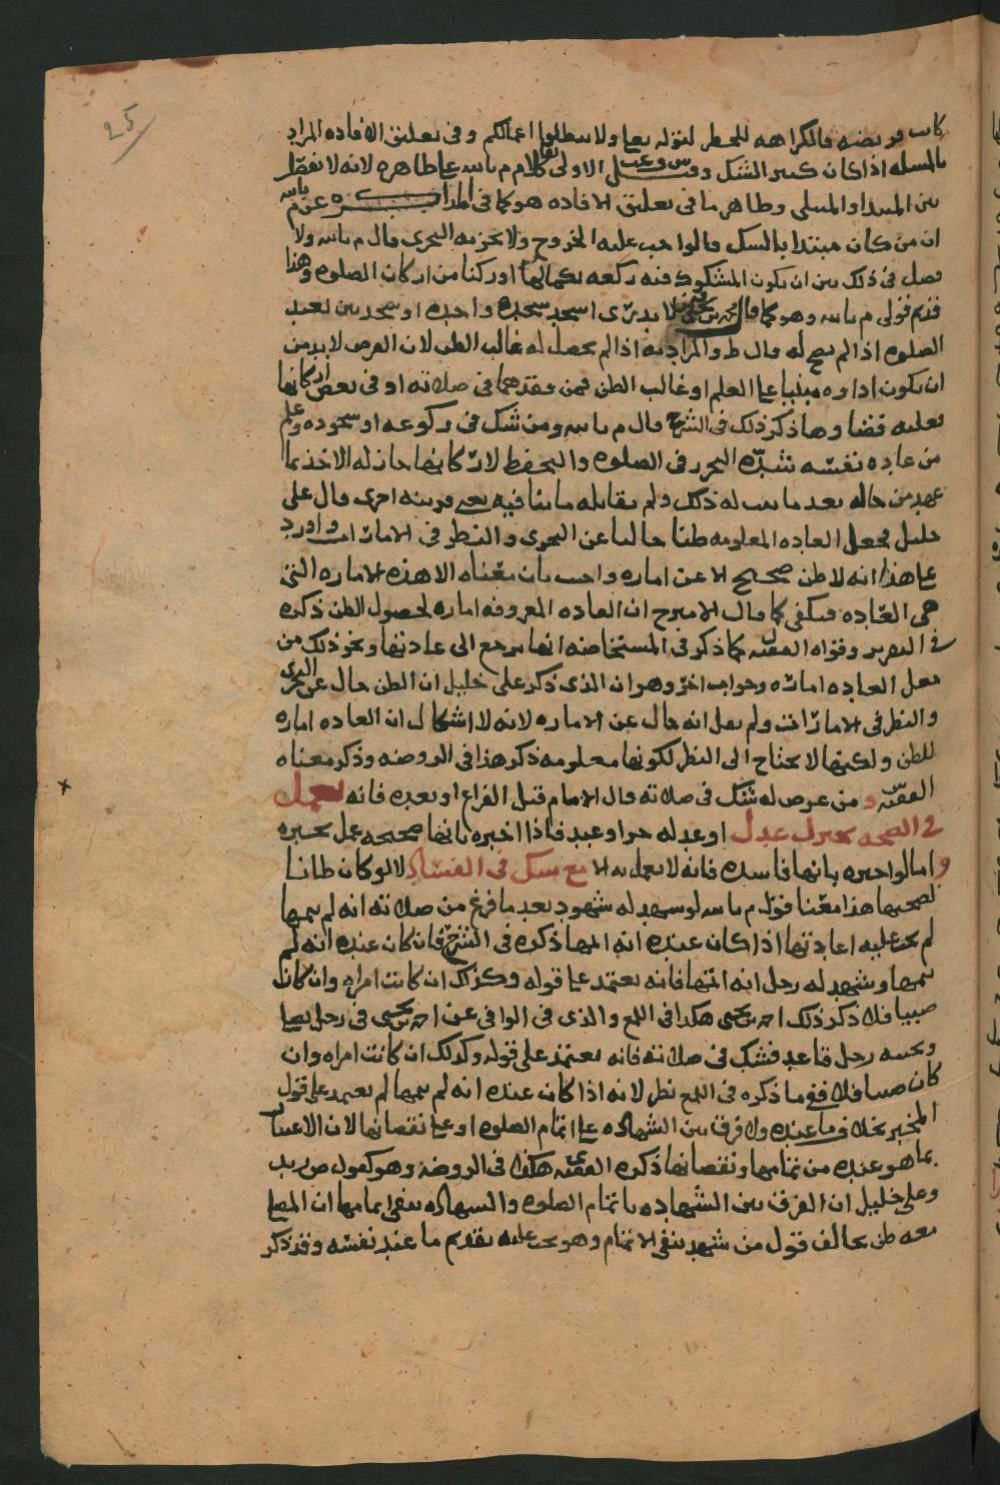 25
كانت فريضه فالكراهه للحظر لقوله تعالى ولا تبطلوا اعمالكم وفى تعليق الافاده المراد
بالمسله اذا كان كثير الشك وقيل الاولى كلام م بالله على ظاهره لانه لا يفصل
بين المبتدا والمبتلى وظاهر ما فى تعليق الافاده هو كما فى عن م بالله
ان من كان مبتدا بالشك فالواجب عليه الخروج ولا يجزيه التحرى قال م بالله ولا
فصل فى ذلك بين ان يكون المشكوك فيه ركعه بكمالها او ركنا من اركان الصلوه وهذا
قديم قولى م بالله وهو كما قال لا يدرى اسجد سجده واحده او سجدتين بعيد
الصلوه اذا لم يصح له قال ط والمراد به اذا لم يحصل له غالب الظن لان الفرض لا بد من
ان يكون اداوه مبنيا على العلم او غالب الظن فمن فقدهما فى صلاته او فى بعض اركانها
فعليه قضاوها ذكر ذلك فى الشرح قال م بالله ومن شك فى ركوعه او سجوده وعلم
من عاده نفسه شده التحرز فى الصلوه والتحفظ لاركانها جاز له الاخذ بما
عهد من حاله بعد ما ثبت له ذلك ولم يقابله ما ينافيه بعد قرينه اخرى قال على
خليل فجعل العاده المعلومه ظنا خاليا عن التحرى والنظر فى الامارات واورد
على هذا انه لا ظن صحيح الا عن اماره واجيب بان معناه الا هذه الاماره التى
هى العاده فيكفى كما قال الامير ح ان العاده المعروفه اماره لحصول الظن ذكره
فى التقرير وقواه الفقيه ل كما ذكر فى المستحاضه انها ترجع الى عادتها ونحو ذلك من
جعل العاده اماره وجواب اخر وهو ان الذى ذكر على خليل ان الظن خال عن التحرى
والنظر فى الامارات ولم يقل انه خال عن الاماره لانه لا اشكال ان العاده اماره
للظن ولكنها لا يحتاج الى النظر لكونها معلومه ذكر هذا فى الروضه وذكر معناه
الفقيه س ومن عرض له شك فى صلاته قال الامام قبل الفراغ او بعده فانه يعمل
فى الصحه بخبر عدل او عدله حرا وعبد فاذا اخبره بانها صحيحه عمل بخبره
واما لو اخبره بانها فاسده فانه لا يعمل به الا مع شك فى الفساد لا لو كان ظانا
لصحتها هذا معنا قول م بالله لو شهد له شهود بعد ما فرغ من صلاته انه لم يتمها
لم يجب عليه اعادتها اذا كان عنده انه اتمها ذكره فى الشرح فان كان عنده انه لم
يتمها وشهد له رجل انه اتمها فانه يعتمد على قوله وكذلك ان كانت امراه وان كان
صبيا فلا ذكر ذلك احمد بن يحيى هكذا فى اللمع والذى فى الوافى عن احمد بن يحيى فى رجل يصلى
وبجنبه رجل قاعد فشك فى صلاته فانه يعتمد على قوله وكذلك ان كانت امراه وان
كان صبيا فلا ففى ما ذكره فى اللمع نظر لانه اذا كان عنده انه لم يتمها لم يعتمد على قول
المخبر بخلاف ما عنده ولا فرق بين الشهاده على اتمام الصلوه او على نقصانها لان الاعتبار
بما هو عنده من تمامها ونقصانها ذكره الفقيه ى هكذا فى الروضه وهو كقول ص زيد
وعلى خليل ان الفرق بين الشهاده باتمام الصلوه والشهاده بنفى اتمامها ان المصلى
معه ظن يخالف قول من شهد بنفى الاتمام وهو يجب عليه تقديم ما عند نفسه وقد ذكر